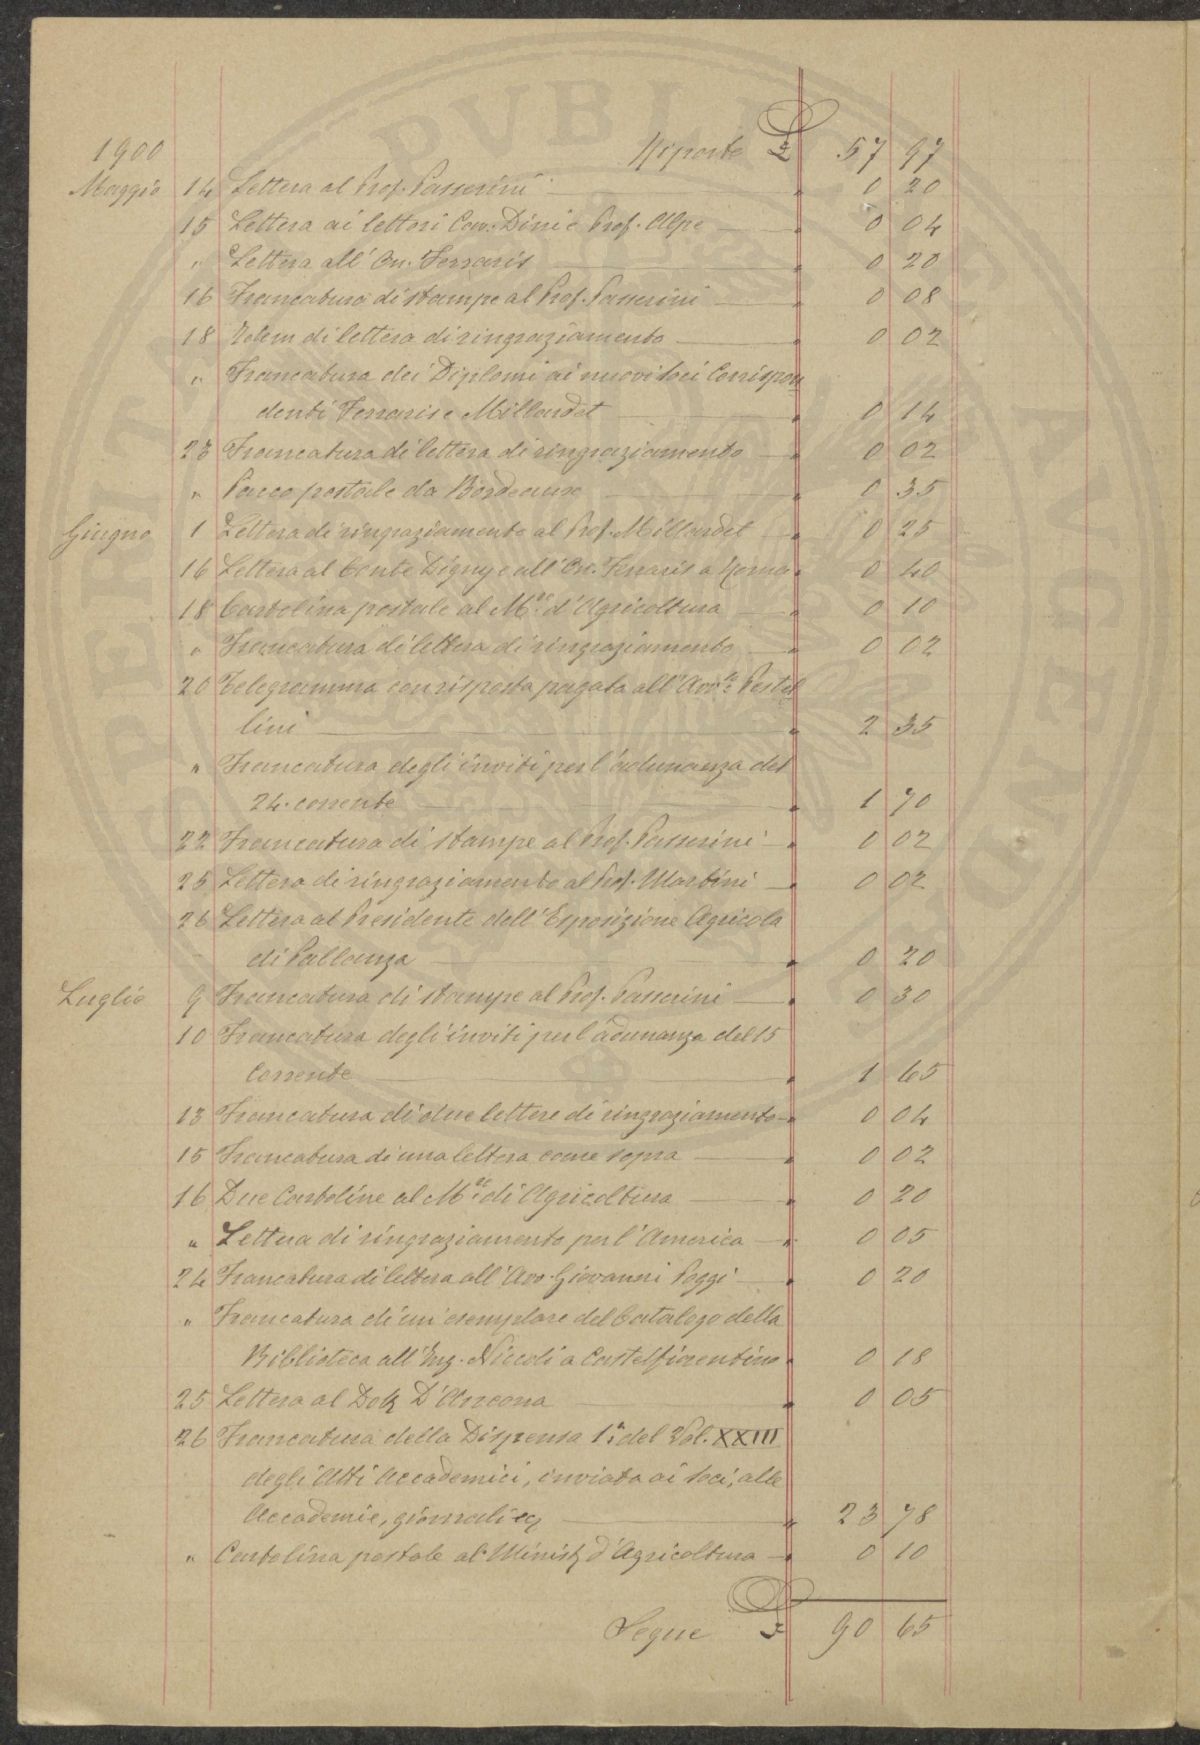 1900 Riporto £ 57 97
Maggio 14 Lettera al Prof. Passerini " 0 20
15 Lettera ai lettori Cav. Dini e Prof. Alpe " 0 04
" Lettera all' On. Ferraris " 0 20
16 Francatura di stampe al Prof. Passerini " 0 08
18 Idem di lettera di ringraziamento " 0 02
" Francatura dei Diplomi ai nuovi soci Corrispon
denti Ferraris e Millardet " 0 14
23 Francatura di lettera di ringraziamento " 0 02
" Pacco postale da Bordeaux " 0 35
Giugno 1 Lettera di ringraziamento al Prof. Millardet " 0 25
16 Lettera al Conte Digny e all' On. Ferraris a Roma " 0 40
18 Cartolina postale al M.º d'Agricoltura " 0 10
" Francatura di lettera di ringraziamento " 0 02
20 Telegramma con risposta pagata all' Avv.º Pestel
lini " 2 35
" Francatura degli inviti per l'adunanza del
24. corrente " 1 70
22 Francatura di stampe al Prof. Passerini " 0 02
25 Lettera di ringraziamento al Prof. Martini " 0 02
26 Lettera al Presidente dell'Esposizione Agricola
di Pallanza " 0 20
Luglio 9 Francatura di stampe al Prof. Passerini " 0 30
10 Francatura degli inviti per l'adunanza del 15
Corrente " 1 65
13 Francatura di due lettere di ringraziamento " 0 04
15 Francatura di una lettera come sopra " 0 02
16 Due Cartoline al M.º di Agricoltura " 0 20
" Lettera di ringraziamento per l'America " 0 05
24 Francatura di lettera all' Avv. Giovanni Poggi " 0 20
" Francatura di un esemplare del Catalogo della
Biblioteca all' Ing. Niccoli a Castelfiorentino " 0 18
25 Lettera al Dott. D'Ancona " 0 05
26 Francatura della Dispensa 1ª del Vol. XXIII
degli Atti Accademici, inviata ai soci, alle
Accademie, giornali ec. " 23 78
" Cartolina postale al Minist. d'Agricoltura " 0 10
Segue £ 90 65